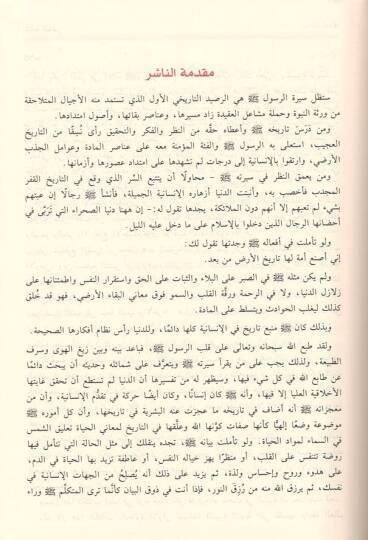 مقدمة الناشر
ستظل سيرة الرسول ﷺ هي الرصيد التاريخي الأول الذي تستمد منه الأجيال المتلاحقة
من ورثة النبوة وحملة مشاعل العقيدة زاد مسيرها، وعناصر بقائها، وأصول امتدادها.
ومن دَرَسَ تاريخه ﷺ وأعطاه حقَّه من النظر والفكر والتحقيق رأى نَسَقًا من التاريخ
العجيب، استعلى به الرسول ﷺ والفئة المؤمنة معه على عناصر المادة وعوامل الجذب
الأرضي، وارتقوا بالإنسانية إلى درجات لم تشهدها على امتداد عصورها وأزمانها.
ومن يعمق النظر في سيرته ﷺ - محاولًا أن يتتبع السّر الذي وقع في التاريخ القفر
المجدب فأخصب به، وأنبتت الدنيا أزهاره الإنسانية الجميلة، فأنشأ ﷺ رجالًا إن عبتهم
بشيء لم تعبهم إلا أنهم دون الملائكة، يجدها تقول له: - إن ههنا دنيا الصحراء التي تَرَبَّى في
أحضانها الرجال الذين دخلوا بالإسلام على ما دخل عليه الليل.
ولو تأملت في أفعاله ﷺ وجدتها تقول لك:
إني أصنع أمة لها تاريخ الأرض من بعد.
ولم يكن مثله ﷺ في الصبر على البلاء والثبات على الحق واستقرار النفس واطمئنانها على
زلازل الدنيا، ولا في الرحمة ورقَّة القلب والسمو فوق معاني البقاء الأرضي، فهو قد خُلق
كذلك ليغلب الحوادث ويتسلط على المادة.
وبذلك كان ﷺ منبع تاريخ في الإنسانية كلها دائمًا، وللدنيا رأس نظام أفكارها الصحيحة.
ولقد طبع الله سبحانه وتعالى على قلب الرسول ﷺ، فباعد بينه وبين زيغ الهوى وسرف
الطبيعة، ولذلك يجب على من يقرأ سيرته ﷺ ويتعرَّف على شمائله وحديثه أن يبحث دائمًا
عن طابع الله في كل شيء فيها، وسيظهر له من تفسيرها أن الدنيا لم تستطع أن تحقق غايتها
الأخلاقية العليا إلا فيها، وأنه ﷺ كان إنسانًا، وكان أيضًا حركة في تقدُّم الإنسانية، وأن من
معجزاته ﷺ أنه أضاف في تاريخه ما عجزت عنه البشرية في تاريخها، وأن كل أموره ﷺ
موضوعة وضعًا إلهيًّا كأنها صفات كوَّنها الله وعلَّقها في التاريخ لمعاني الحياة تعليق الشمس
في السماء لمواد الحياة. ولو تأملت بيانه ﷺ، تجده ينقلك إلى مثل الحالة التي تتأمل فيها
روضة تتنفس على القلب، أو منظرًا يهز خياله النفس، أو عاطفة تزيد بها الحياة في الدم،
على هدوء وروح وإحساس ولذة، ثم يزيد على ذلك أنه يُصلِحُ من الجهات الإنسانية في
نفسك، ثم يرزق الله منه من رُزِقَ النور، فإذا أنت في ذوق البيان كأنَّما ترى المتكلِّم ﷺ وراء